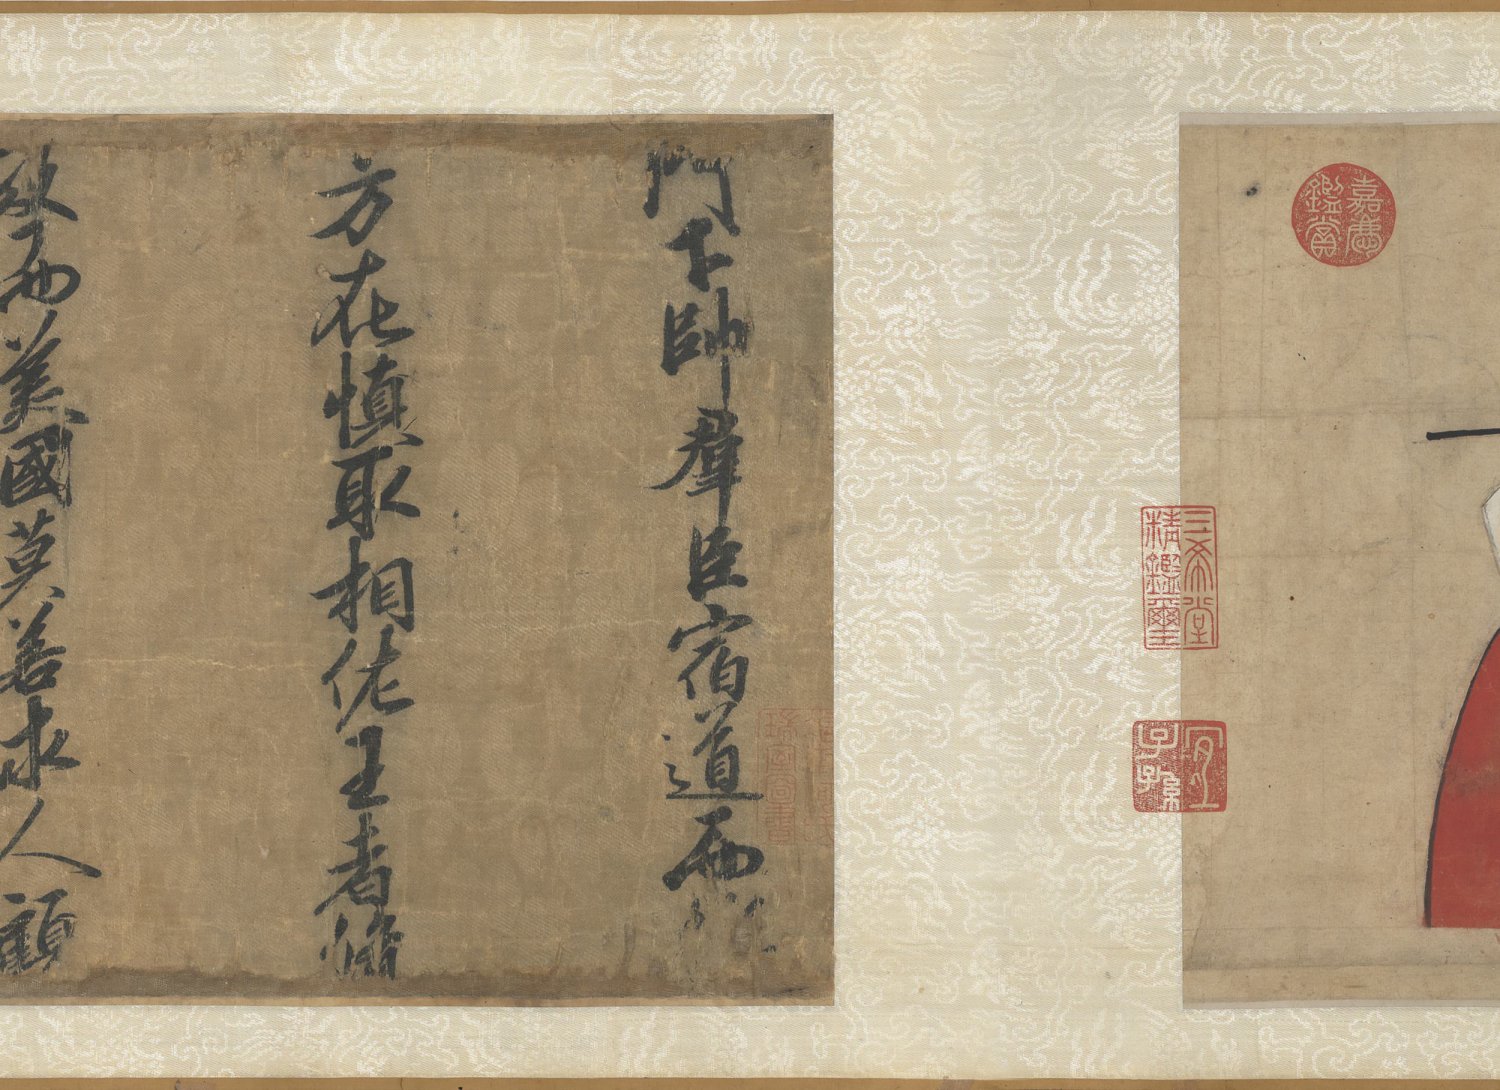 嘉慶鑑賞
三希堂精鑑璽
宜子孫
門下帥羣臣宿道而
方在慎取相佐王者脩
政而美國莫若求人顧